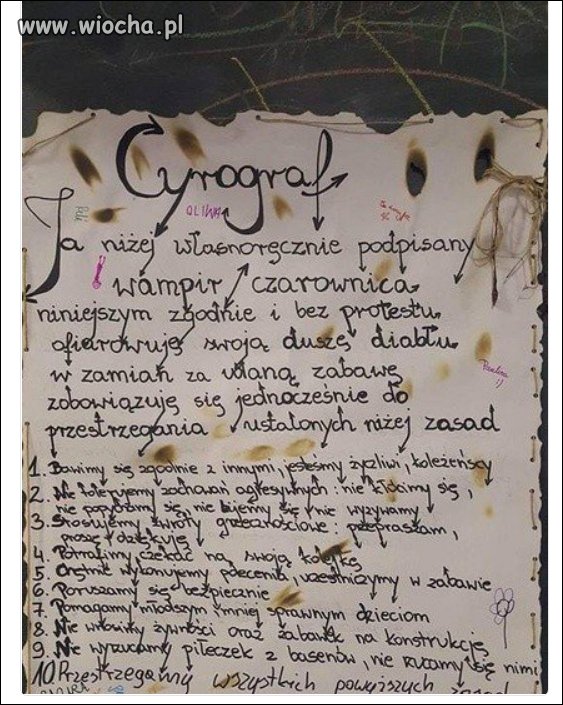 www.wiocha.pl
Cyrograf
OLIWA
Ja niżej własnoręcznie podpisany
wampir czarownica
niniejszym zgodnie i bez protestu
ofiarowuję swoją duszę diabłu
w zamian za udaną zabawę
Paulina :)
zobowiązuję się jednocześnie do
przestrzegania ustalonych niżej zasad
1. Bawimy się zgodnie z innymi, jesteśmy życzliwi, koleżeńscy
2. Nie tolerujemy zachowań agresywnych: nie kłócimy się,
nie popychamy się, nie bijemy się i nie wyzywamy
3. Stosujemy zwroty grzecznościowe: przepraszam,
proszę, dziękuję
4. Potrafimy czekać na swoją kolejkę
5. Chętnie wykonujemy polecenia, uczestniczymy w zabawie
6. Poruszamy się bezpiecznie
7. Pomagamy młodszym i mniej sprawnym dzieciom
8. Nie wnosimy żywności oraz zabawek na konstrukcję
9. Nie wyrzucamy piłeczek z basenów, nie rzucamy się nimi
10. Przestrzegamy wszystkich powyższych zasad